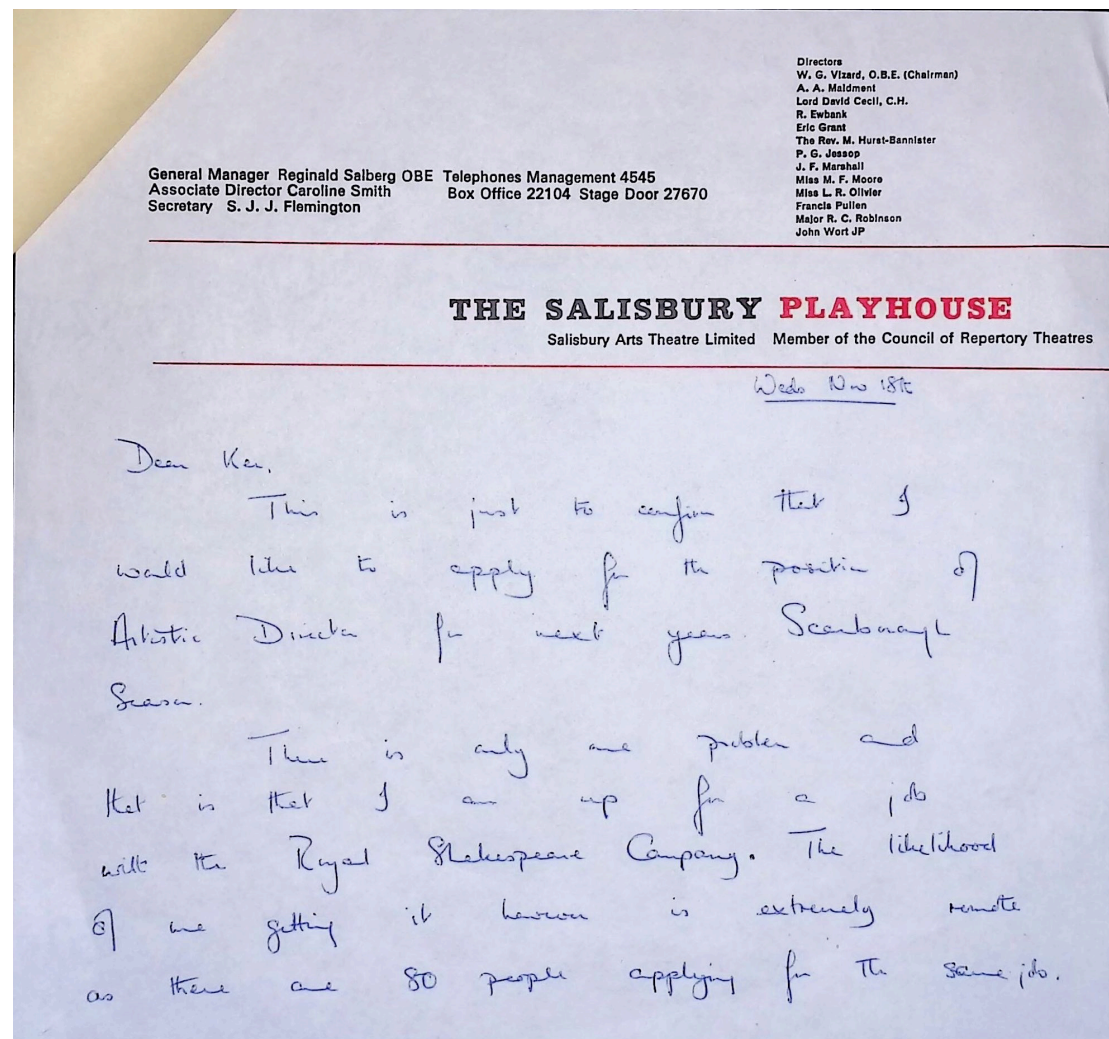 Directors
W. G. Vizard, O.B.E. (Chairman)
A. A. Maidment
Lord David Cecil, C.H.
R. Ewbank
Eric Grant
The Rev. M. Hurst-Bannister
P. G. Jessop
J. F. Marshall
Miss M. F. Moore
Miss L. R. Olivier
Francis Pullen
Major R. C. Robinson
John Wort JP
General Manager Reginald Salberg OBE Telephones Management 4545
Associate Director Caroline Smith Box Office 22104 Stage Door 27670
Secretary S. J. J. Flemington
THE SALISBURY PLAYHOUSE
Salisbury Arts Theatre Limited Member of the Council of Repertory Theatres
Weds Nov 18th
Dear Ken,
This is just to confirm that I
would like to apply for the position of
Artistic Director for next years Scarborough
Season.
There is only one problem and
that is that I am up for a job
with the Royal Shakespeare Company. The likelihood
of me getting it however is extremely remote
as there are 80 people applying for the same job.